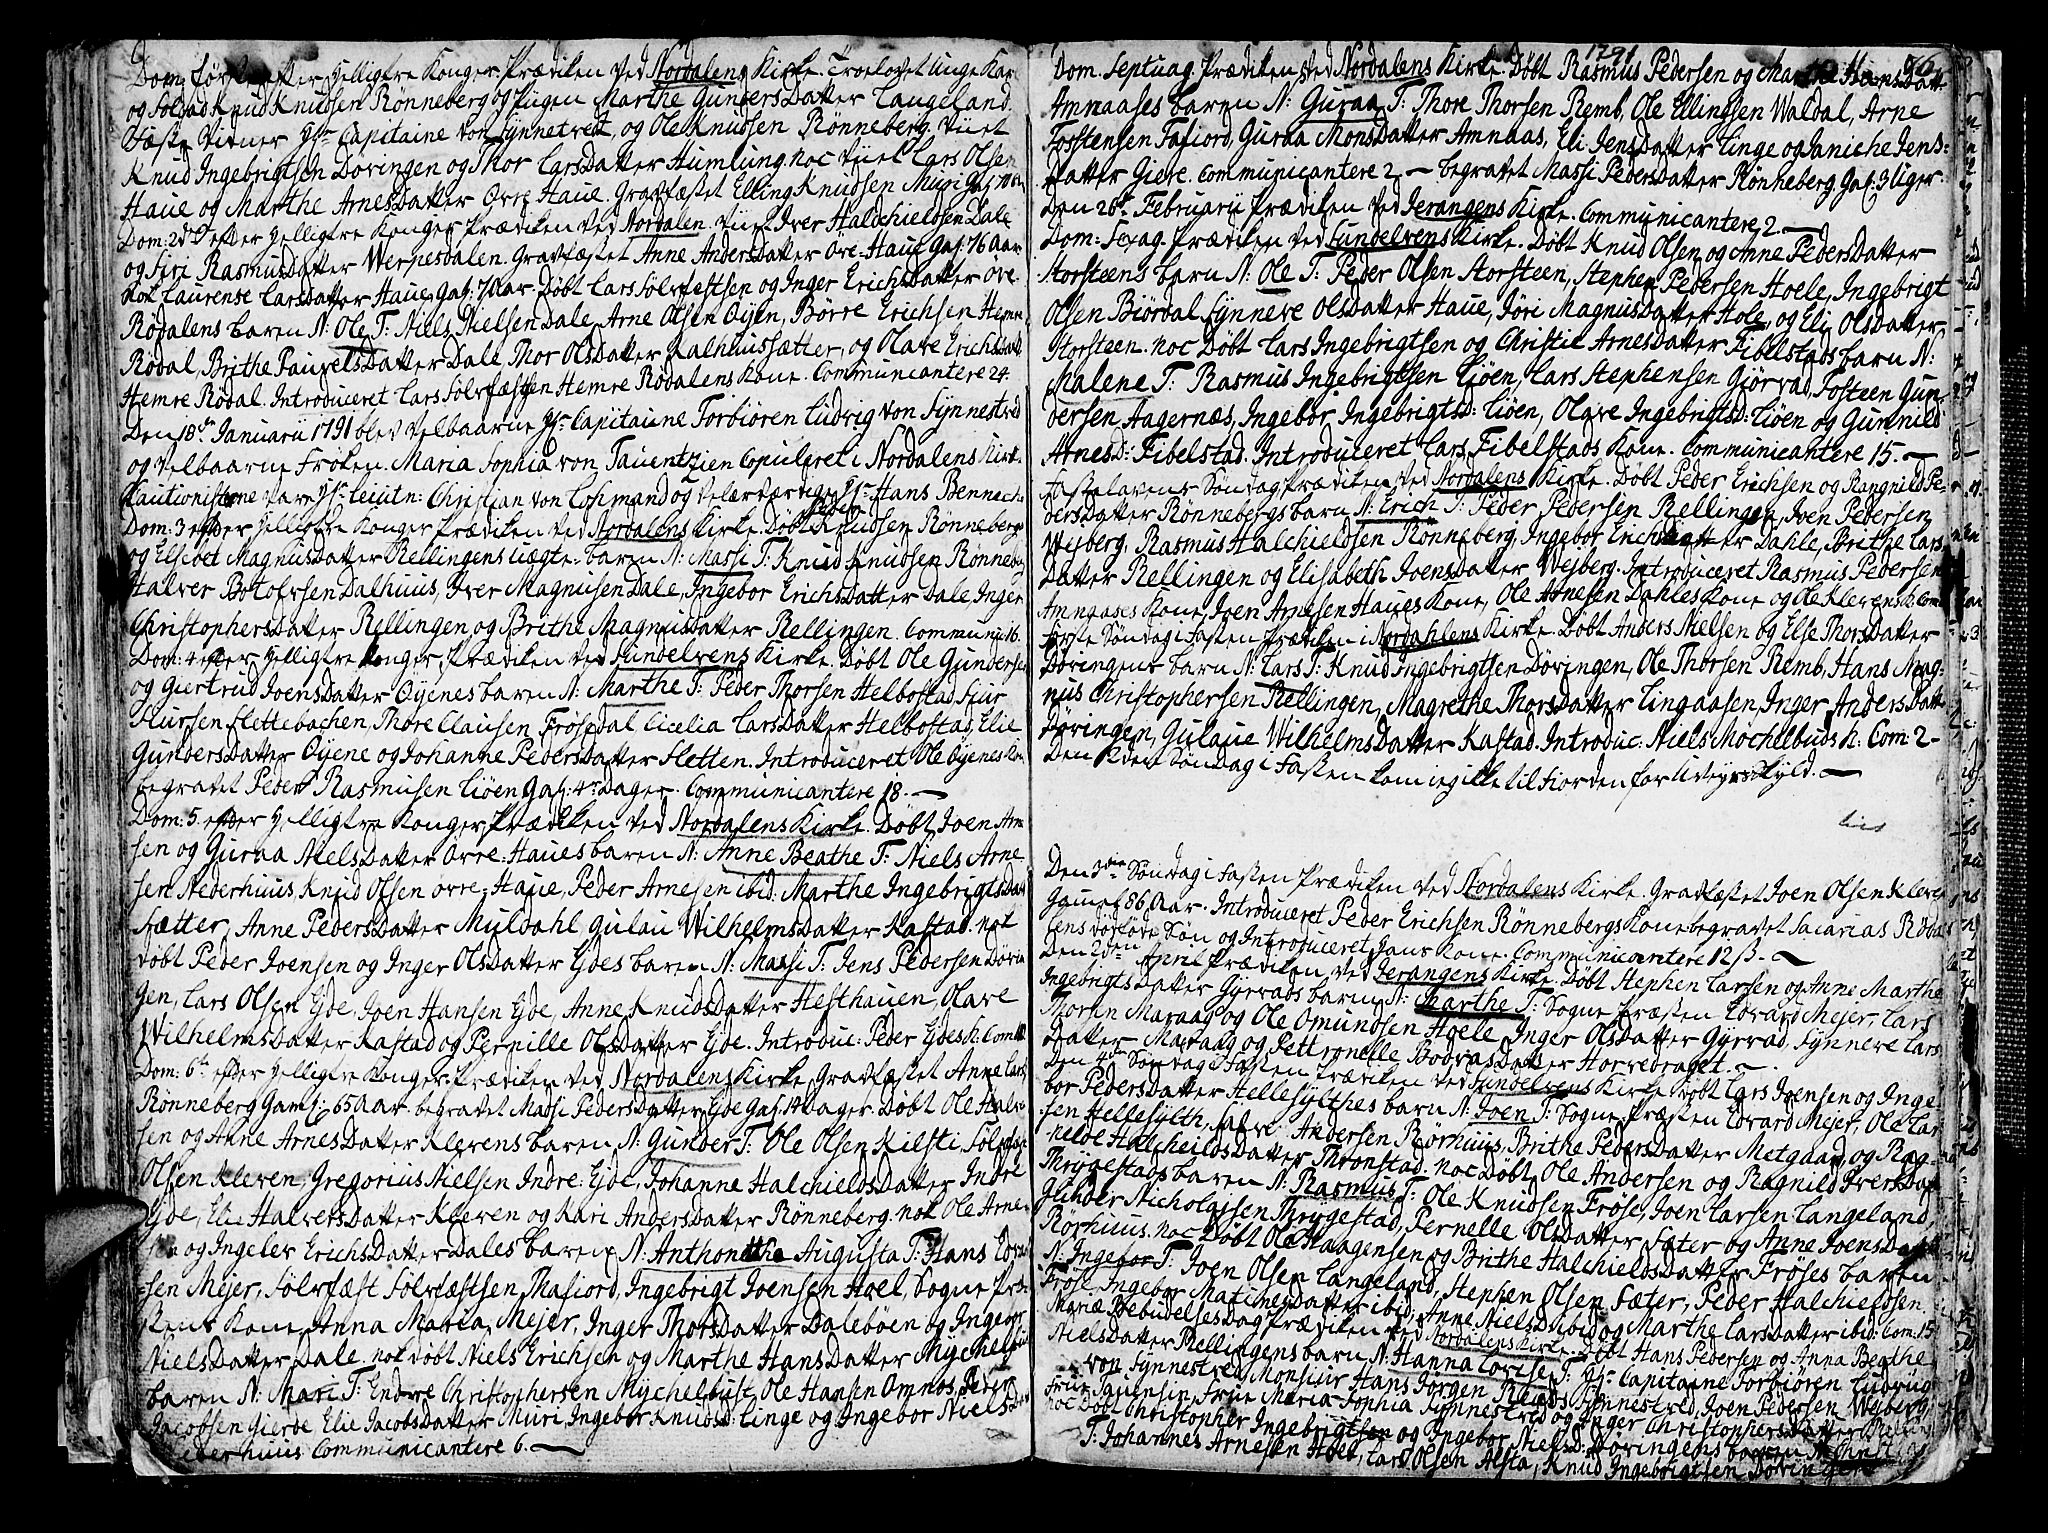 Dom: første efter Helligtre Konger Prædiken ved Nordalens Kirke. Trolovet unge Karl
og Soldad Knud Knudsen Rønneberg og Pigen Marthe Gunders Datter Langeland.
Fæste Vidner Hr. Capitaine von Synnetvedt, og Ole Knudsen Rønneberg. Viiet
Knud Ingebrigtsen Døvingen og Thor Larsdatter Humlung. noc Viiet Lars Olsen
Haue og Marthe Arnesdatter Øvre Haue. Gravfæstet Elling Knudsen Muri Gal: 70
Dom: 2den efter Helligtre Konger Prædiken ved Nordalen. Viiet Iver Halchieldsen Dale
og Siri Rasmusdatter Wernesdalen. Gravfæstet Anne Andersdatter Øvre Haue Gal: 76 Aar
nok Laurense Larsdatter Haue, Gal: 70 Aar. Døbt Lars Sølvfestsen og Inger Erichsdatter Øvre
Rødalens barn N: Ole T: Niels Nielsen Dale, Arne Olsen Øyen, Børre Erichsen Hemre
Rødal, Brithe Pauvelsdatter Dale, Thor Olsdatter Dalhuussætter, og Olave Erichsdatter
Hemre Rødal. Introduceret Lars Sølvfæstsen Hemre Rødalens Kone. Communicantere 24.
Den 18de Januarii 1791 blev Velbaarne Hr. Capitaine Torbiören Ludvig von Synnestved
og Velbaarne Frøken Maria Sophia von Tauentzien Copuleret i Nordalens Kirke
Cautionistene vare Hr. Leiutn: Christian von Lohmand og Velærværdige Hr. Hans Bennech
Dom: 3 efter Helligtre Konger Prædiken ved Nordalens Kirke. Døbt Peder Knudsen Rønnebergs
og Elsebet Magnusdatter Rellingens uægte barn N: Massi T: Knud Knudsen Rønneberg
Halver Botolvsen Dalhuus, Iver Magnusen Dale, Ingebor Erichsdatter Dale, Inger
Christophersdatter Rellingen og Brithe Magnusdatter Rellingen. Communi: 16.
Dom: 4 efter Helligtre Konger Prædiken ved Sundelvens Kirke. Døbt Ole Gundersen
og Giertrud Joensdatter Øyenes barn N: Marthe T: Peder Thorsen Helbostad, Siur
Siursen Slettebachen, Thore Clausen Frøysdal, Cicelia Larsdatter Helbostad, Elie
Gundersdatter Øyene og Johanne Pedersdatter Sletten. Introduceret Ole Øyenes Kone
begravet Peder Rasmusen Liöen Gal: 4re Dager. Communicantere 18.
Dom: 5. efter Helligtre Konger Prædiken ved Nordalens Kirke. Døbt Joen Arne
sen og Guraa Nielsdatter Øvre Haues barn N: Anne Beathe T: Niels Arne
sen Nederhuus, Knud Olsen Øvre Haue, Peder Arnesen ibid: Marthe Ingebrigtsdatter
Sætter, Anne Pedersdatter Muldahl, Gulau Wilhelmsdatter Kastad. nok
døbt Peder Joensen og Inger Olsdatter Eides barn N: Massi T: Jens Pedersen Døvin
gen, Lars Olsen Eide, Joen Hansen Eide, Anne Knudsdatter Hesthauen, Olave
Wilhelmsdatter Kastad og Pernille Olsdatter Eide. Introduc: Peder Eides K: Com:
Dom: 6te efter Helligtre Konger Prædiken ved Nordalens Kirke. Gravfæstet Anne Lars
Rønneberg Gaml: 65 Aar. begravet Massi Pedersdatter Eide Gal: 14 Dager. Døbt Ole Halv
sen og Anne Arnesdatter Klevens barn N: Gunder T: Ole Olsen Kilsti, Sølvfæst
Olsen Kleven, Gregorius Nielsen Indre Eide, Johanne Halchieldsdatter Indre
Eide, Elie Halversdatter Kleven og Kari Andersdatter Rønneberg. nok Ole Arne-
sen og Ingeler Erichsdatter Dales barn N: Anthonethe Augusta T: Hans Edvard
sen Mejer, Sølvfæst Sølvfæstsen Thafiord, Ingebrigt Joensen Hoel, Sogne Præ
stens Kone Anna Maria Mejer, Inger Thorsdatter Dalebøen og Ingebor
Nielsdatter Dale. nok døbt Niels Erichsen og Marthe Hansdatter Mychelbust
barn N: Mari T: Endre Christophersen Mychelbust, Ole Hansen Omnos, Peder
Jacobsen Gierde, Elie Jacobsdatter Muri, Ingebor Knudsd: Linge og Ingebor Nielsdatter
Nederhuus. Communicantere 6.
1791
Dom. Septuag. Prædiken ved Nordalens Kirke. Døbt Rasmus Pedersen og Marthe Hansdatt
Amnaases barn N: Guraa T: Thore Thorsen Remb, Ole Ellingsen Waldal, Arne
Tostensen Tafiord, Guraa Monsdatter Amnaas, Eli Jensdatter Linge og Janiche Jens-
datter Giere. Communicantere 2. begravet Massi Pedersdatter Rønneberg Gal: 3 Uger.
Den 20de Februarii Prædiken ved Jerangens Kirke. Communicantere 2.
Dom: Sexag. Prædiken ved Sundelvens Kirke. Døbt Knud Olsen og Anne Pedersdatter
Storsteens barn N: Ole T: Peder Olsen Storsteen, Stephen Pedersen Hoele, Ingebrigt
Olsen Biørdal, Synneve Olsdatter Haue, Jøri Magnusdatter Hole, og Eli Olsdatter
Storsteen. noc Døbt Lars Ingebrigtsen og Christie Arnesdatter Fibelstads barn N:
Malene T: Rasmus Ingebrigtsen Liøen, Lars Stephensen Giørvad, Josteen Gun
dersen Aagernæs, Ingebor Ingebrigtsd: Liøen, Olave Ingebrigtsd: Liøen og Gunnild
Arnesd: Fibelstad. Introduceret Lars Fibelstads Kone. Communicantere 15.
Fastelavens Søndag Prædiken ved Nordalens Kirke. Døbt Peder Erichsen og Rangnild Pe-
dersdatter Rønnebergs barn N: Erich T: Peder Pedersen Rellingen, Joen Pedersen
Wejberg, Rasmus Halchieldsen Rønneberg, Ingebor Erichsdatter Dahle, Brithe Lars
datter Rellingen og Elisabeth Joensdatter Wejberg. Introduceret Rasmus Pedersen
Amnaases Kone, Joen Arnesen Haues Kone, Ole Arnesen Dahles Kone og Ole Klevens K: Com:
første Søndag i Fasten Prædiken i Nordahlens Kirke. Døbt Anders Nielsen og Else Thorsdatter
Døvingens barn N: Lars T: Knud Ingebrigtsen Døvingen, Ole Thorsen Remb, Hans Mag-
nus Christophersen Rellingen, Magrethe Thorsdatter Lingaasen, Inger Andersdatt
Døvingen, Gulaue Wilhelmsdatter Kastad. Introduc: Niels Mochelbusds K: Com: 2-
Den 2den Søndag i Fasten kom ieg ikke til Fiorden for Uveyrs Skyld.
Den 3die Søndag i Fasten Prædiken ved Nordalens Kirke. Gravfæstet Joen Olsen Kleven
Gamel 86 Aar. Introduceret Peder Erichsen Rønnebergs Kone begravet Sacarias Røda
lens dødfødde Søn og Introduceret hans Kone. Communicantere 12
Den 2den April Prædiken ved Jerangens Kirke. Døbt Stephen Larsen og Anne Marthe
Ingebrigtsdatter Gyrvads barn N: Marthe T: Sogne Præsten Edvard Mejer, Lars
Thorsen Maraag og Ole Omundsen Hoele, Inger Olsdatter Gyrvad, Synneve Lars
datter Maraag og Pettronelle Bodvasdatter Horvedraget.
Den 4de Søndag i Fasten Prædiken ved Sundelvens Kirke døbt Lars Joensen og Inge-
bor Pedersdatter Hellesylthes barn N: Joen T: Sogne Præsten Edvard Mejer, Ole Lar
sen Hellesylth, Salve Andersen Rørhuus, Brithe Pedersdatter Metgaard, og Rag-
nilde Halcheildsdatter Thronstad. noc Døbt Ole Andersen og Ragnild Iversdatt
Thrygestads barn N: Rasmus T: Ole Knudsen Frøse, Joen Larsen Langeland,
Gunder Nicholajsen Thrygestad, Pernelle Olsdatter Sæter og Anne Joensdatt
Rørhuus. noc Døbt Ole Haagensen og Brithe Halchieldsdatter Frøses barn
N: Ingebor T: Joen Olsen Langeland, Stephen Olsen Sæter, Peder Halchieldsen
Frøse, Ingebor Matinesdatter ibid, Anne Nielsd: ibid og Marthe Larsdatter ibid: Com: 15
Mariæ Bebudelses Dag Prædiken ved Nordalens Kirke. Døbt Hans Pedersen og Anna Beathe
Nielsdatter Rellingens barn N: Hanna Lovise T: Hr. Capitaine Torbiören Ludvig
von Synnestved, Monsiur Hans Jørgen Synnestved, Joen Pedersen Wejberg,
Frue Tauensin, Frue Maria Sophia Synnestved og Inger Christophersdatter Relling
noc Døbt Christopher Ingebrigtsen og Ingebor Nielsd: Døvingens barn N: Christi
T: Johannes Arnesen Hoel, Lars Olsen Alsta, Knud Ingebrigtsen Døvingen